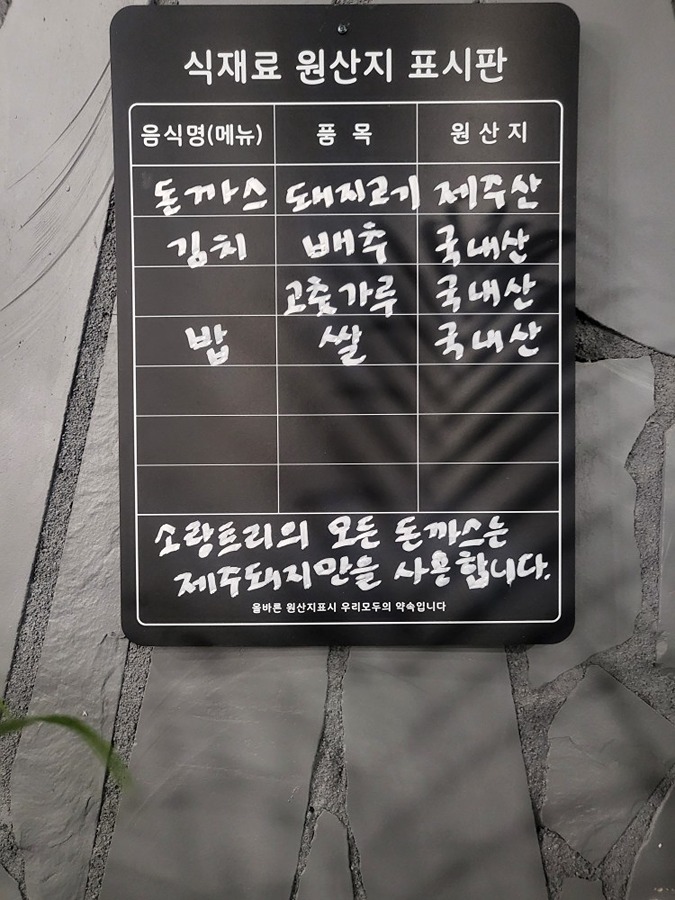 식재료 원산지 표시판
음식명(메뉴) 품목 원산지
돈까스 돼지고기 제주산
김치 배추 국내산
고춧가루 국내산
밥 쌀 국내산
소랑프리의 모든 돈까스는
제주돼지만을 사용합니다.
올바른 원산지표시 우리모두의 약속입니다